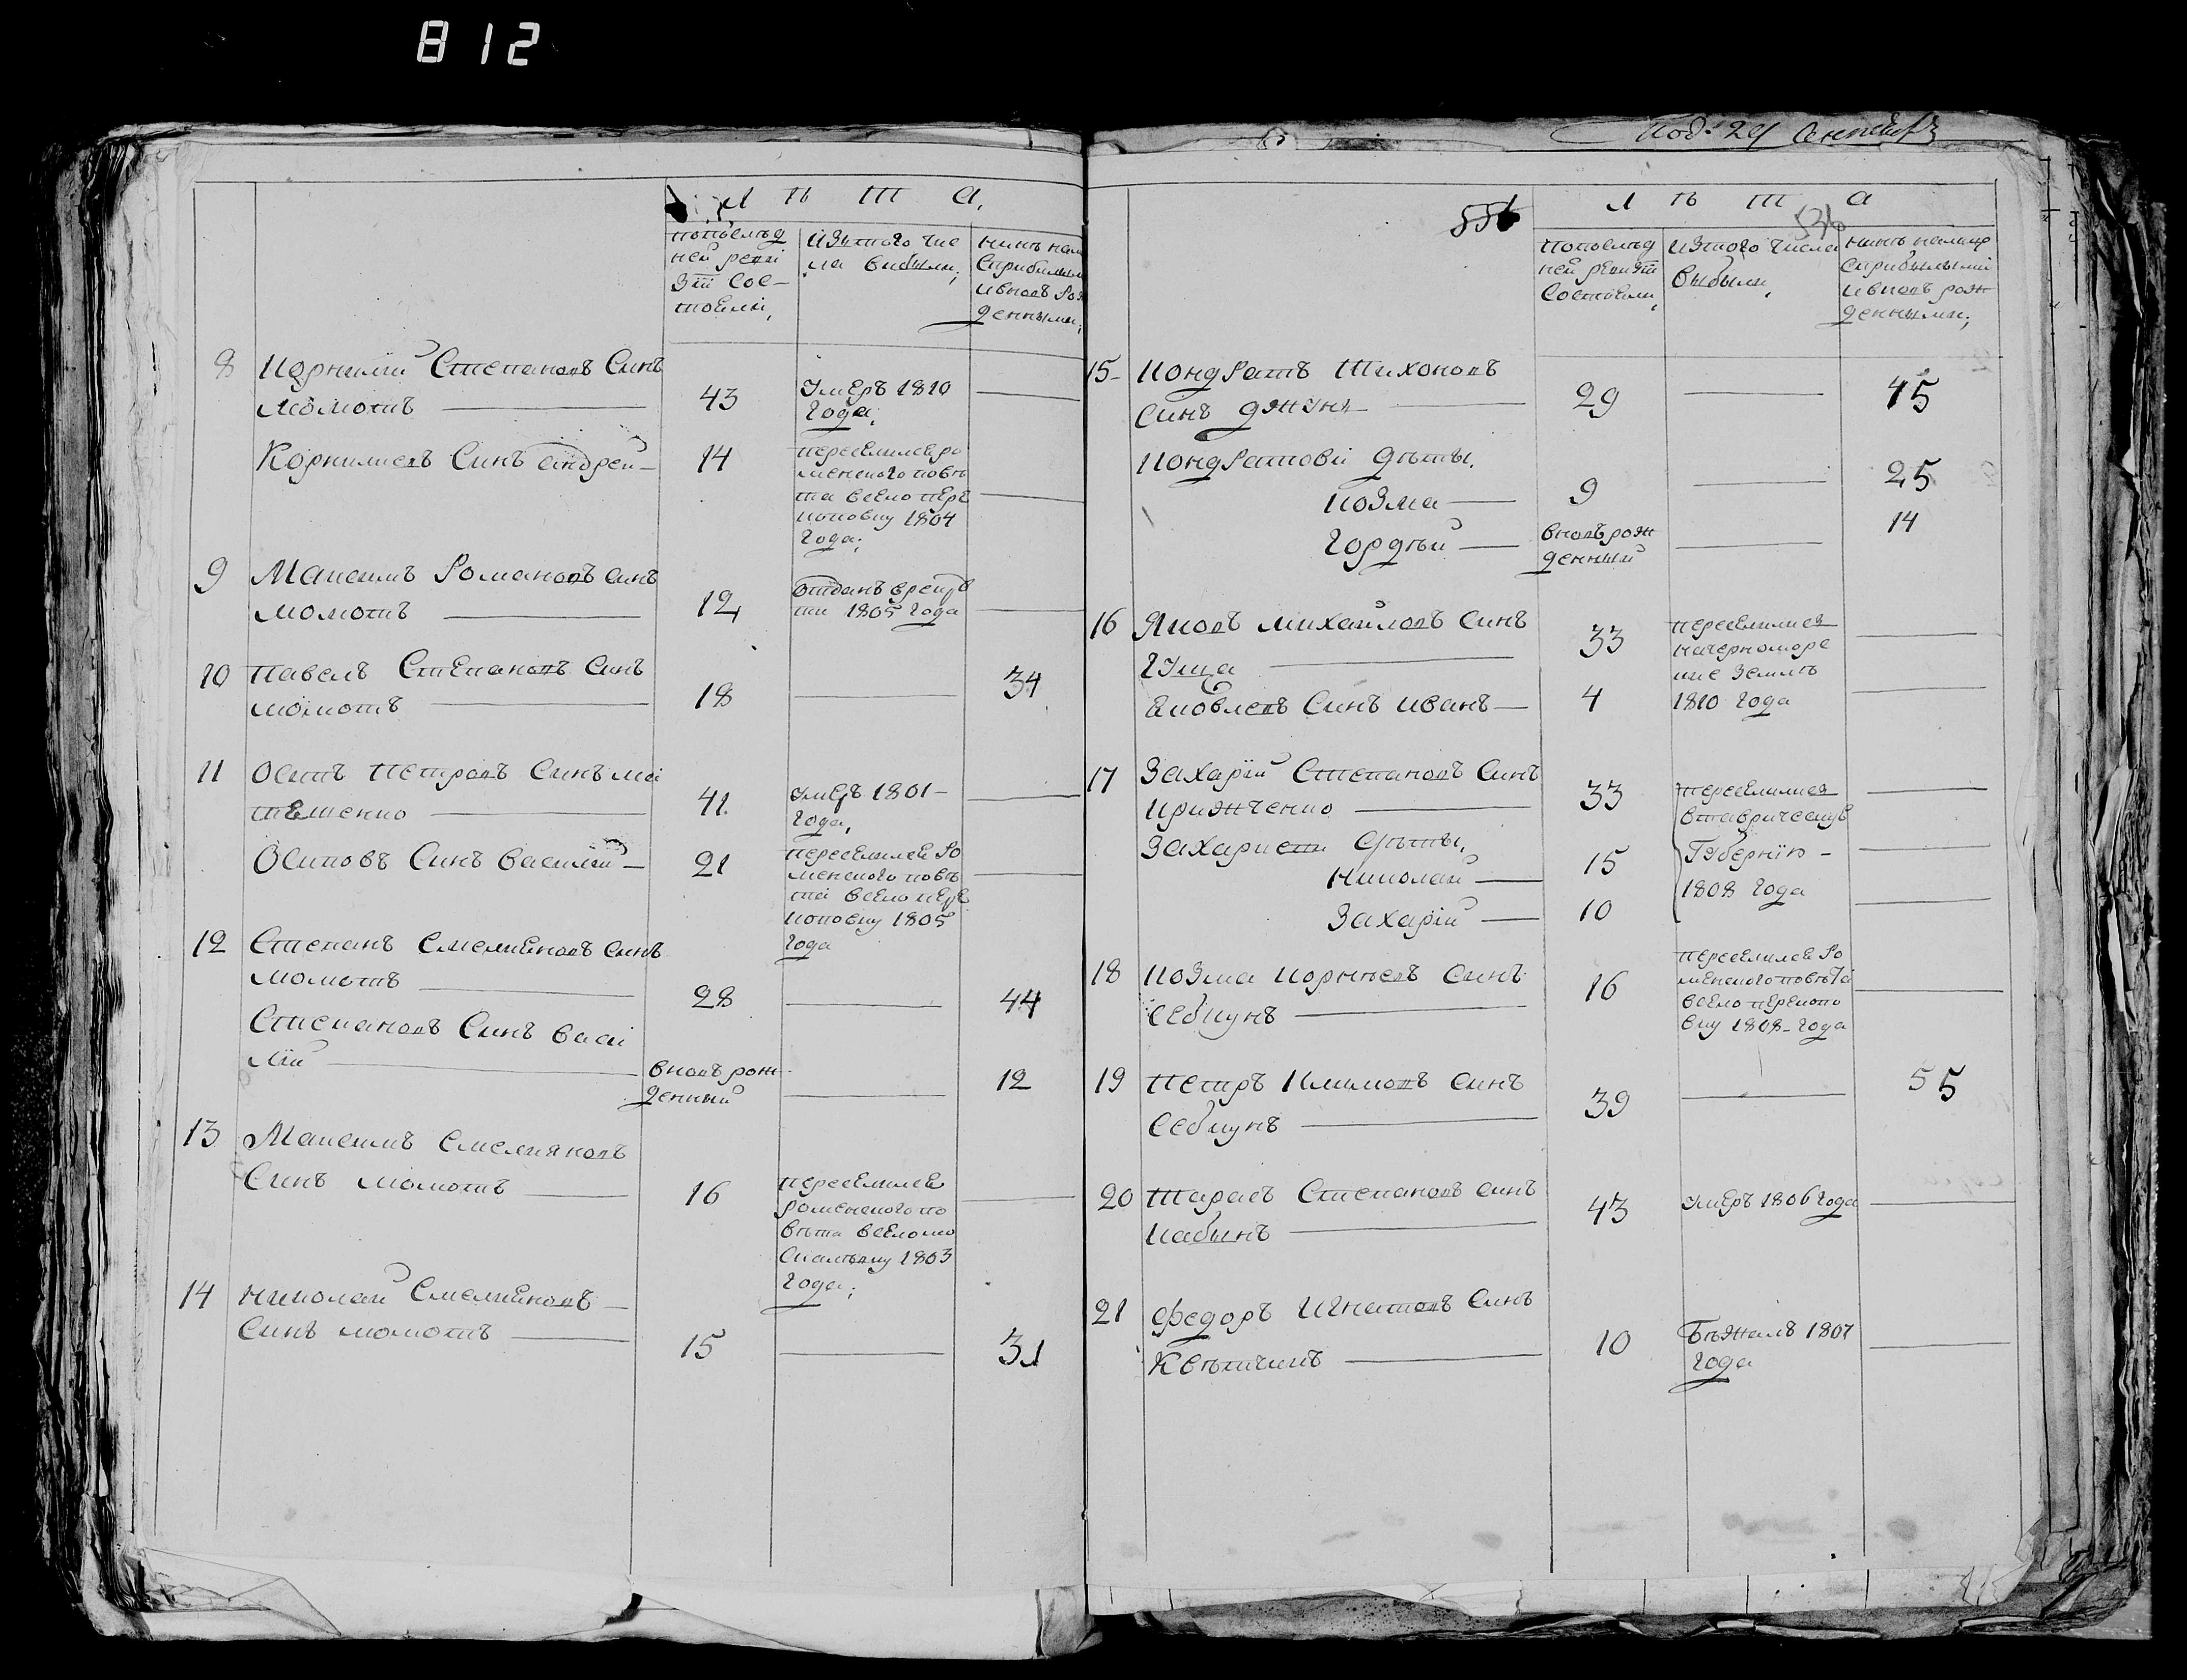 812
Л Ѣ Т А,
попослѣд
ней реви
зіи сос-
тояли,
Изтого чис
ла выбыли,
нинѣ нали
Сприбылыми
ивновь рож
денными,
8 Корнилий Степановъ Синъ
момотъ — 43 Умеръ 1810 —
Года;
Корнилиевъ Синъ андрей — 14 переселился ро
менского повѣ
та всело пере —
коповку 1804
Года;
9 Максимъ Романовъ синъ
момотъ — 12 отданъ врекру
ти 1805 Года —
10 Павелъ Степановъ Синъ
момотъ — 18 — 34
11 Осипъ Петровъ Синъ мо
тешенко — 41 умеръ 1801 — —
Года,
Осиповъ Синъ василий — 21 переселился Ро
менского повѣ —
та всело пере
коповку 1805
Года
12 Степанъ Емелияновъ синъ
момотъ — 28 — 44
Степановъ Синъ васи
лій — вновь рож
денный — 12
13 Максимъ Емелияновъ
Синъ момотъ — 16 переселился —
Роменского по
вѣта всело
1803
Года;
14 Николай Емелияновъ —
Синъ момотъ — 15 — 31
Под. 24
556
536
Л Ѣ Т А
попослѣд
ней ревизіи
Состояли,
изтого числа
выбыли,
нинѣ налицо
сприбылыми
ивновь рож
денными;
15 Кондратъ Тихоновъ
синъ джунь — 29 — 45
Кондратови дѣты,
Козма — 9 — 25
Гордѣй — вновь рож — 14
денный
16 Яковъ михайловъ Синъ
Гуща — 33 переселился —
начерноморс
кие Землѣ
Яковлевъ Синъ иванъ — 4 1810 Года —
17 Захарій Степановъ Синъ
крижченко — 33 переселился —
втаврическую
Захариеви дѣты,
Николай — 15 Губернію — —
1808 Года
Захарій — 10 —
18 Козма корнѣевъ Синъ
Севкунъ — 16 переселился Ро
менского повѣта —
всело перекопо
вку 1808 Года
19 Петръ Климовъ Синъ
Севкунъ — 39 — 55
20 Тарасъ Степановъ синъ
кабынъ — 43 умеръ 1806 Года —
21 Федоръ Игнатовъ Синъ
Квѣтчинъ — 10 Бѣжалъ 1807 —
Года